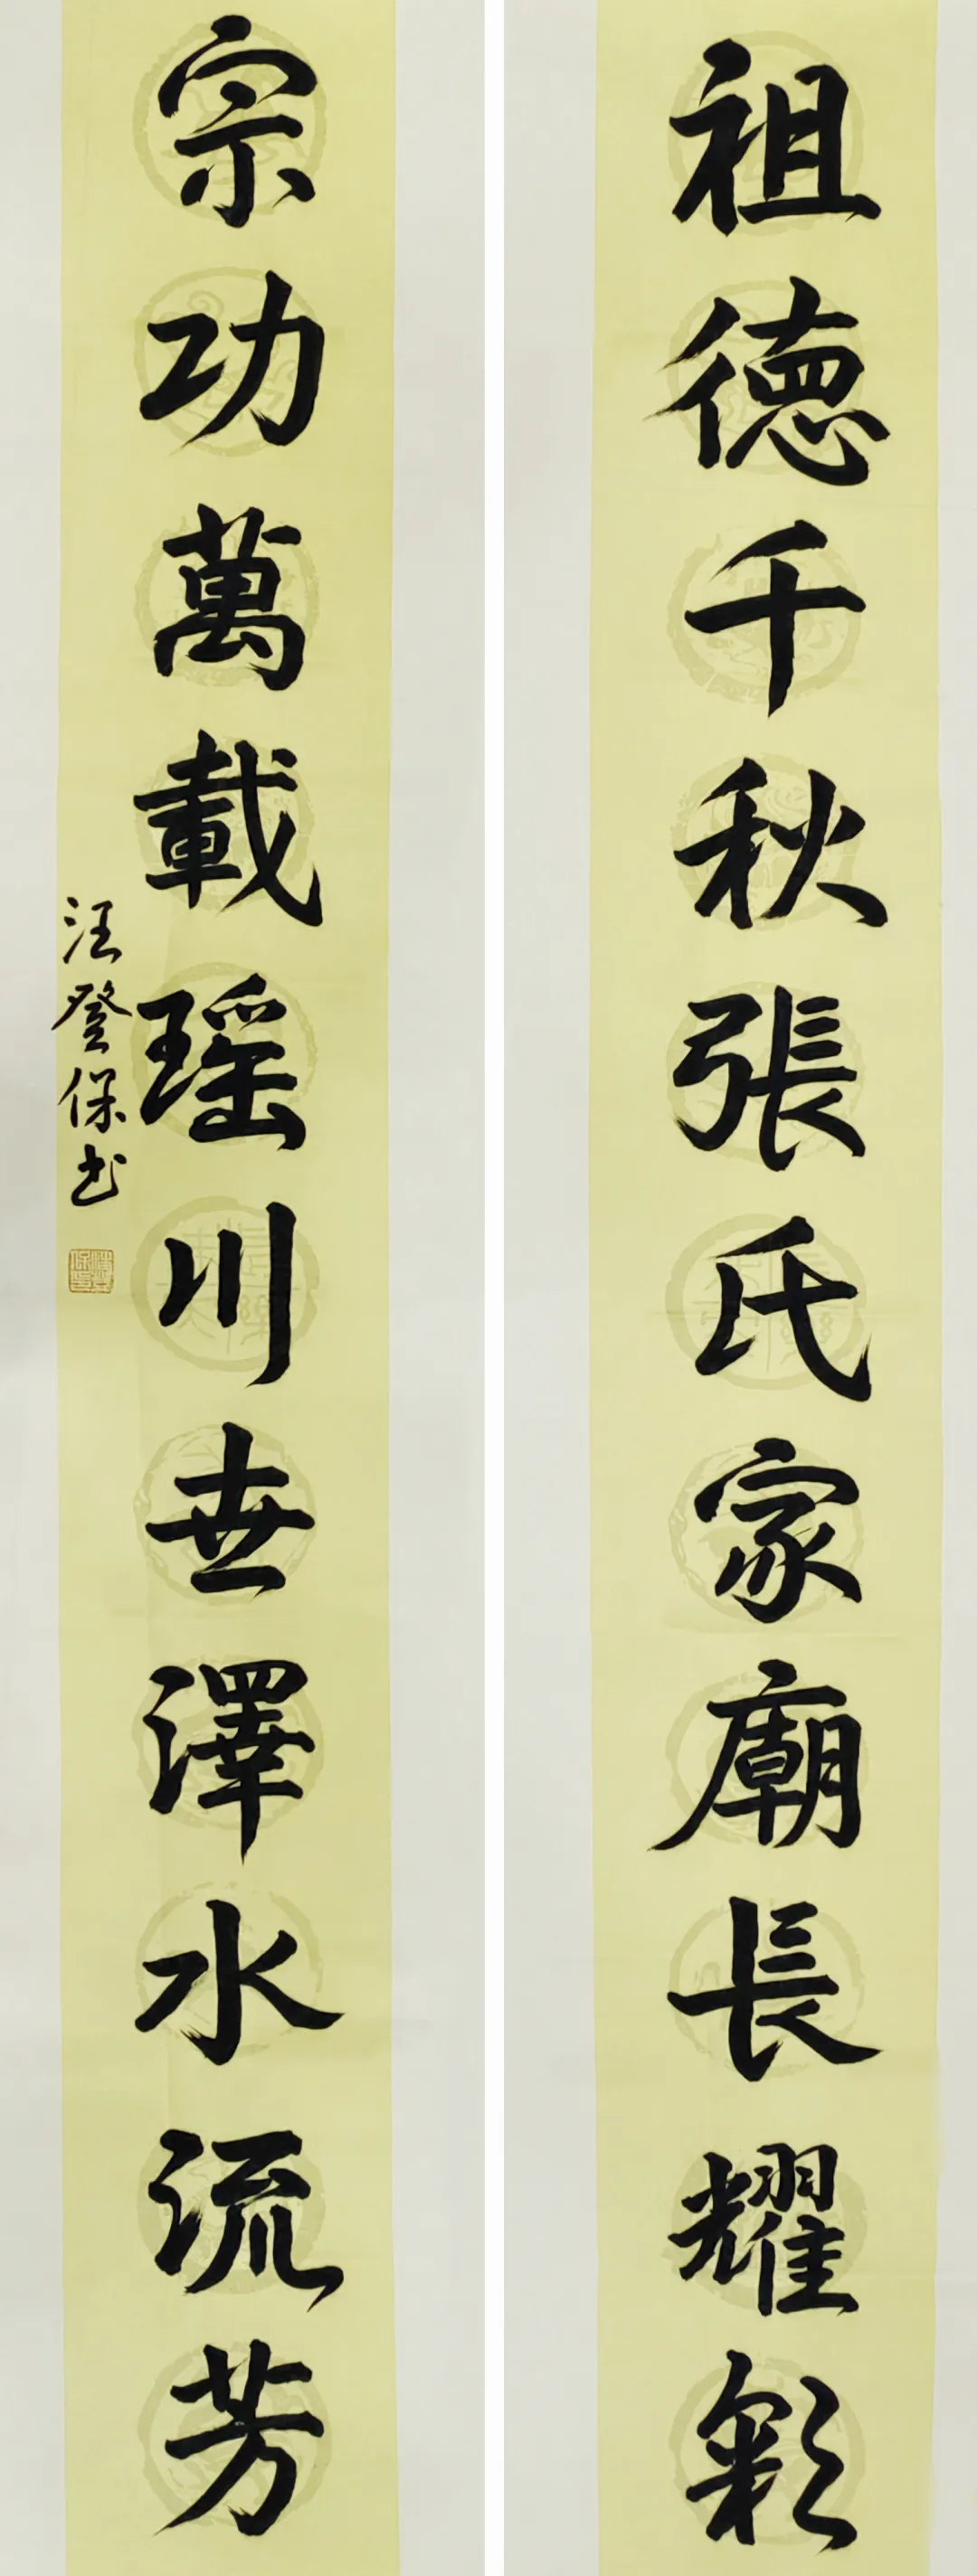 祖德千秋張氏家廟長耀彩
宗功萬載瑶川世澤水流芳
汪登保书